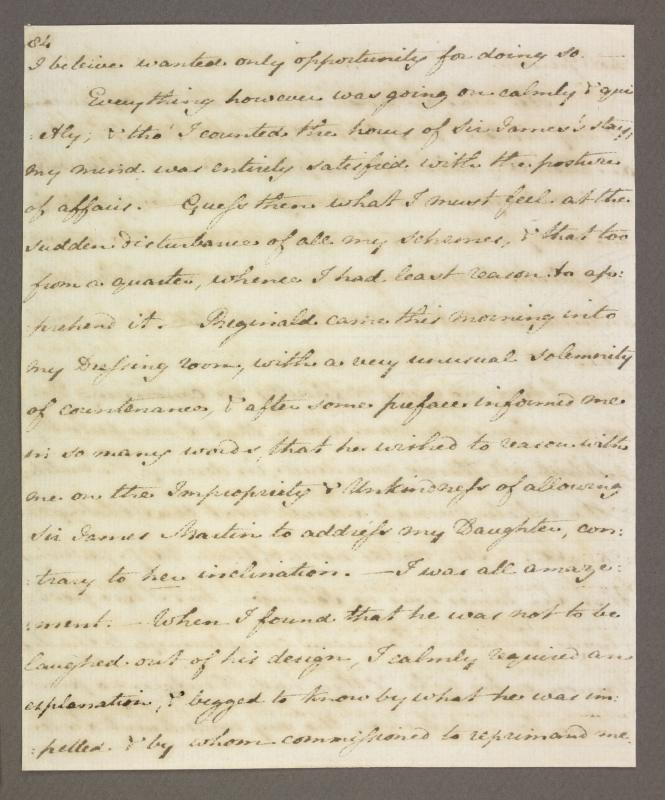 84
I beleive wanted only opportunity for doing so. —
Everything however was going on calmly & qui
:etly; & tho' I counted the hours of Sir James's stay,
my mind was entirely satisfied with the posture
of affairs. Guess then what I must feel at the
sudden disturbance of all my schemes, & that too
from a quarter, whence I had least reason to ap:
:prehend it. Reginald came this morning into
my Dressing room, with a very unusual solemnity
of countenance, & after some preface informed me
in so many words, that he wished to reason with
me on the Impropriety & Unkindness of allowing
Sir James Martin to address my Daughter, con:
:trary to her inclination. — I was all amaze:
:ment. — When I found that he was not to be
laughed out of his design, I calmly required an
explanation, & begged to know by what he was im:
:pelled & by whom commissioned to reprimand me.